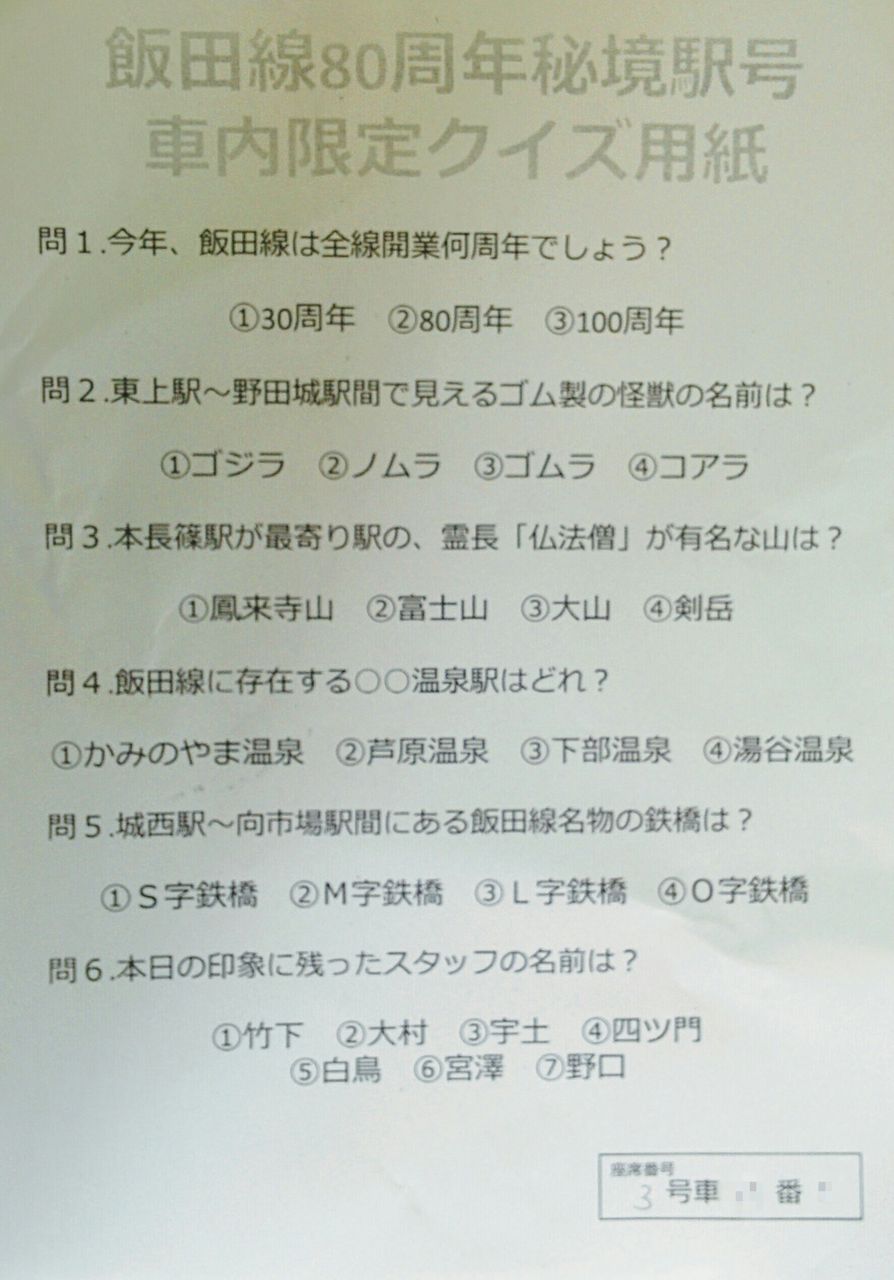 飯田線80周年秘境駅号
車内限定クイズ用紙
問1.今年、飯田線は全線開業何周年でしょう？
①30周年 ②80周年 ③100周年
問2.東上駅～野田城駅間で見えるゴム製の怪獣の名前は？
①ゴジラ ②ノムラ ③ゴムラ ④コアラ
問3.本長篠駅が最寄り駅の、霊長「仏法僧」が有名な山は？
①鳳来寺山 ②富士山 ③大山 ④剣岳
問4.飯田線に存在する○○温泉駅はどれ？
①かみのやま温泉 ②芦原温泉 ③下部温泉 ④湯谷温泉
問5.城西駅～向市場駅間にある飯田線名物の鉄橋は？
①S字鉄橋 ②M字鉄橋 ③L字鉄橋 ④O字鉄橋
問6.本日の印象に残ったスタッフの名前は？
①竹下 ②大村 ③宇土 ④四ツ門
⑤白鳥 ⑥宮澤 ⑦野口
座席番号
3号車 番